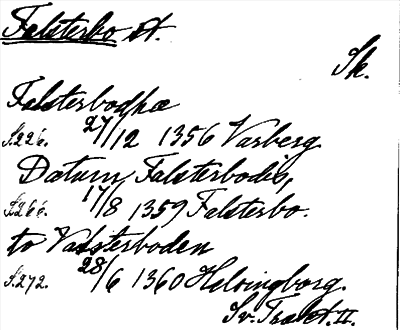 Falsterbo st.
Sk.
Falsterbodhæ
S.226. 27/12 1356 Varberg.
Datum Falsterbodis,
S.266. 17/8 1359 Falsterbo.
to Valsterboden
S.272. 28/6 1360 Helsingborg.
Sv. Trakt. II.